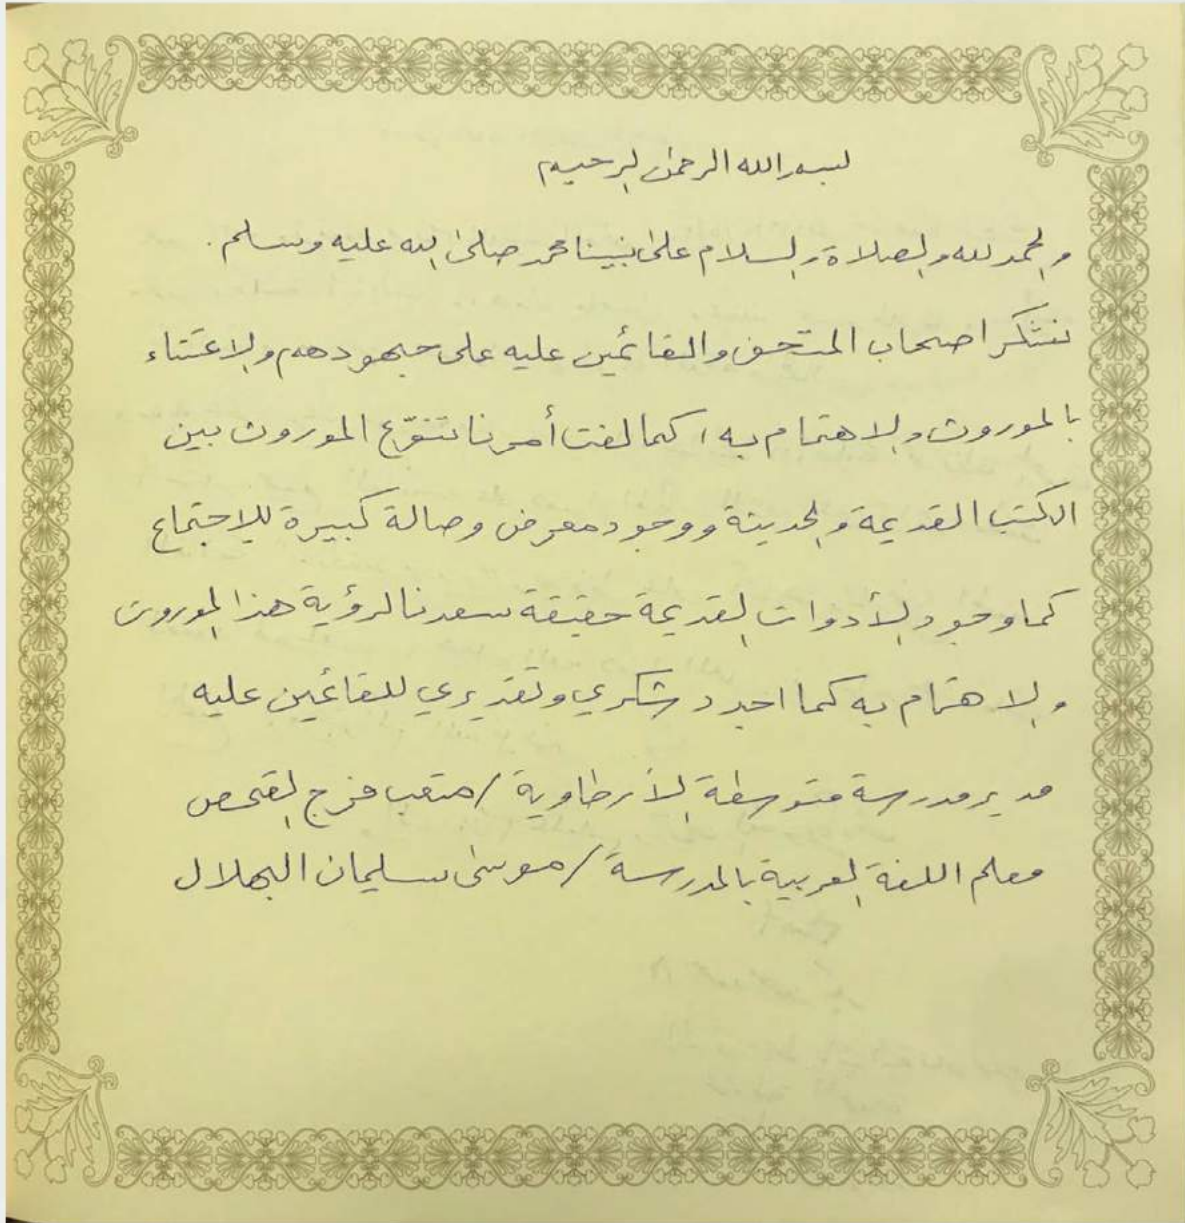 بسم الله الرحمن الرحيم
والحمد لله والصلاة والسلام على نبينا محمد صلى الله عليه وسلم .
نشكر اصحاب المتحف والقائمين عليه على جهودهم والاعتناء
بالموروث والاهتمام به ، كما لفت أمرنا تنوّع الموروث بين
الكتب القديمة والحديثة ووجود معرض وصالة كبيرة للاجتماع
كما وجود الأدوات القديمة حقيقة سعدنا لرؤية هذا الموروث
والاهتمام به كما اجدد شكري وتقديري للقائمين عليه
مدير مدرسة متوسطة الأرطاوية / متعب فرج
معلم اللغة العربية بالمدرسة / موسى سليمان البهلال